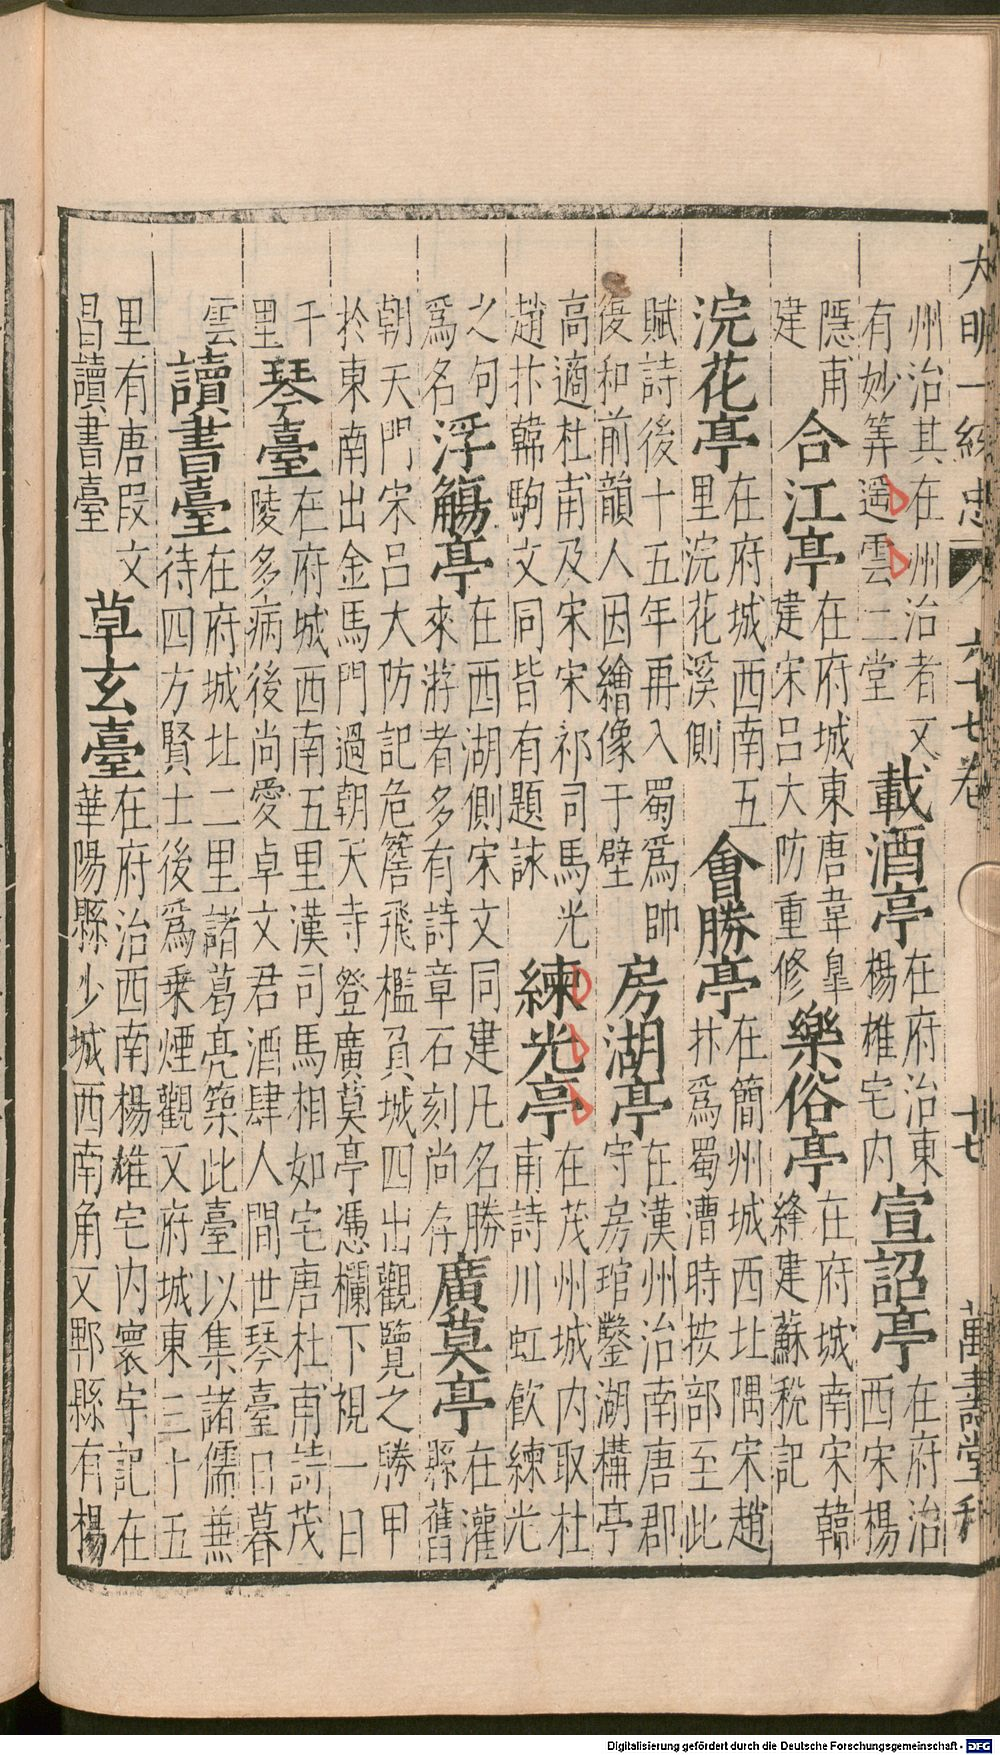 大明一統志 六十七卷 廿 萬壽堂刊
州治其在州治者又
有妙筭遥雲二堂
載酒亭
在府治東
楊雄宅内
宣詔亭
在府治
西宋楊
隱甫
建
合江亭
在府城東唐韋臯
建宋呂大防重修
樂俗亭
在府城南宋韓
絳建蘇稅記
浣花亭
在府城西南五
里浣花溪側
會勝亭
在簡州城西北隅宋趙
抃爲蜀漕時按部至此
賦詩後十五年再入蜀爲帥
復和前韻人因繪像于壁
房湖亭
在漢州治南唐郡
守房琯鑿湖構亭
高適杜甫及宋宋祁司馬光
趙抃韓駒文同皆有題詠
練光亭
在茂州城内取杜
甫詩川虹飲練光
之句
爲名
浮觴亭
在西湖側宋文同建凡名勝
來游者多有詩章石刻尚存
廣莫亭
在灌
縣舊
朝天門宋呂大防記危簷飛檻負城四出觀覽之勝甲
於東南出金馬門過朝天寺登廣莫亭憑欄下視一日
千
里
琴臺
在府城西南五里漢司馬相如宅唐杜甫詩茂
陵多病後尚愛卓文君酒肆人間世琴臺日暮
雲
讀書臺
在府城北二里諸葛亮築此臺以集諸儒兼
待四方賢士後爲乗煙觀又府城東三十五
里有唐段文
昌讀書臺
草玄臺
在府治西南楊雄宅内寰宇記在
華陽縣少城西南角又郫縣有楊
Digitalisierung gefördert durch die Deutsche Forschungsgemeinschaft - DFG